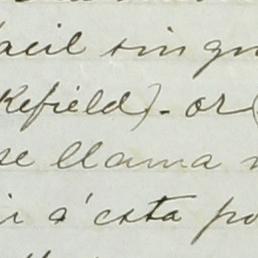 acil sin
Kefield) - or(
se llama
ir á esta po